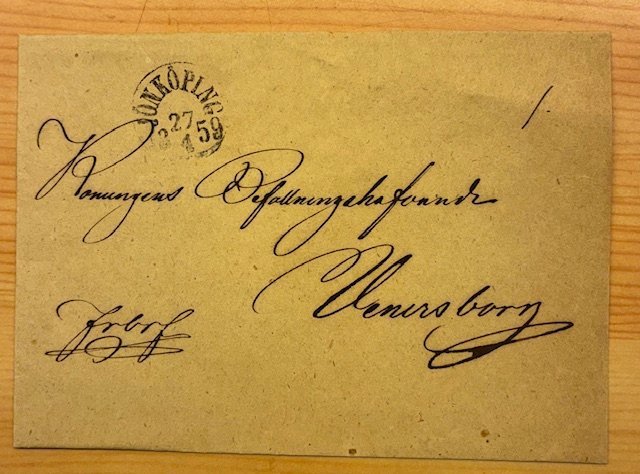 JÖNKÖPING
27
18 4 59
1.
Konungens Befallningshafvande
Venersborg
Frbrf